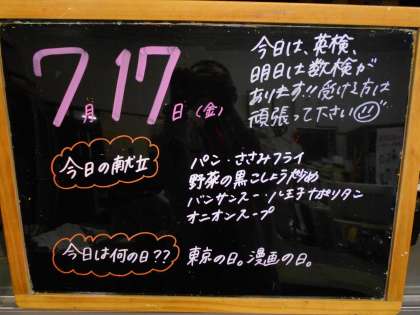 7月17日(金)
今日は、英検、
明日は数検が
あります!!受ける方は
頑張って下さい
今日の献立
パン・ささみフライ
野菜の黒こしょう炒め
バンサンスー・八王子ナポリタン
オニオンスープ
今日は何の日??
東京の日。漫画の日。